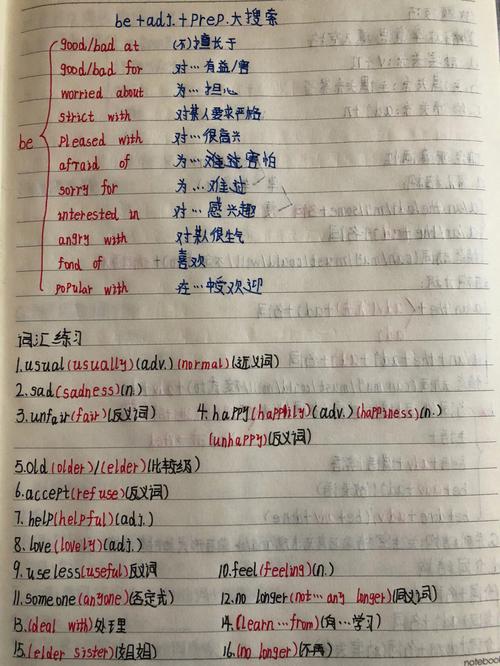 be+adj.+prep.大搜索
good/bad at (不)擅长于
good/bad for 对…有益/害
worried about 为…担心
strict with 对某人要求严格
be pleased with 对…很高兴
afraid of 为…难过害怕
sorry for 为…难过
interested in 对…感兴趣
angry with 对某人很生气
fond of 喜欢
popular with 在…中受欢迎
词汇练习
1.usual(usually)(adv.)(normal)(近义词)
2.sad(sadness)(n.)
3.unfair(fair)(反义词) 4.happy(happily)(adv.)(happiness)(n.)
(unhappy)(反义词)
5.old(older)/(elder)(比较级)
6.accept(refuse)(反义词)
7.help(helpful)(adj.)
8.love(lovely)(adj.)
9.useless(useful)反义词 10.feel(feeling)(n.)
11.someone(anyone)(否定式) 12.no longer(not…any longer)(同义词)
13.(deal with)处理 14.(learn…from)(向…学习)
15.(elder sister)(姐姐) 16.(no longer)(不再)
notebook